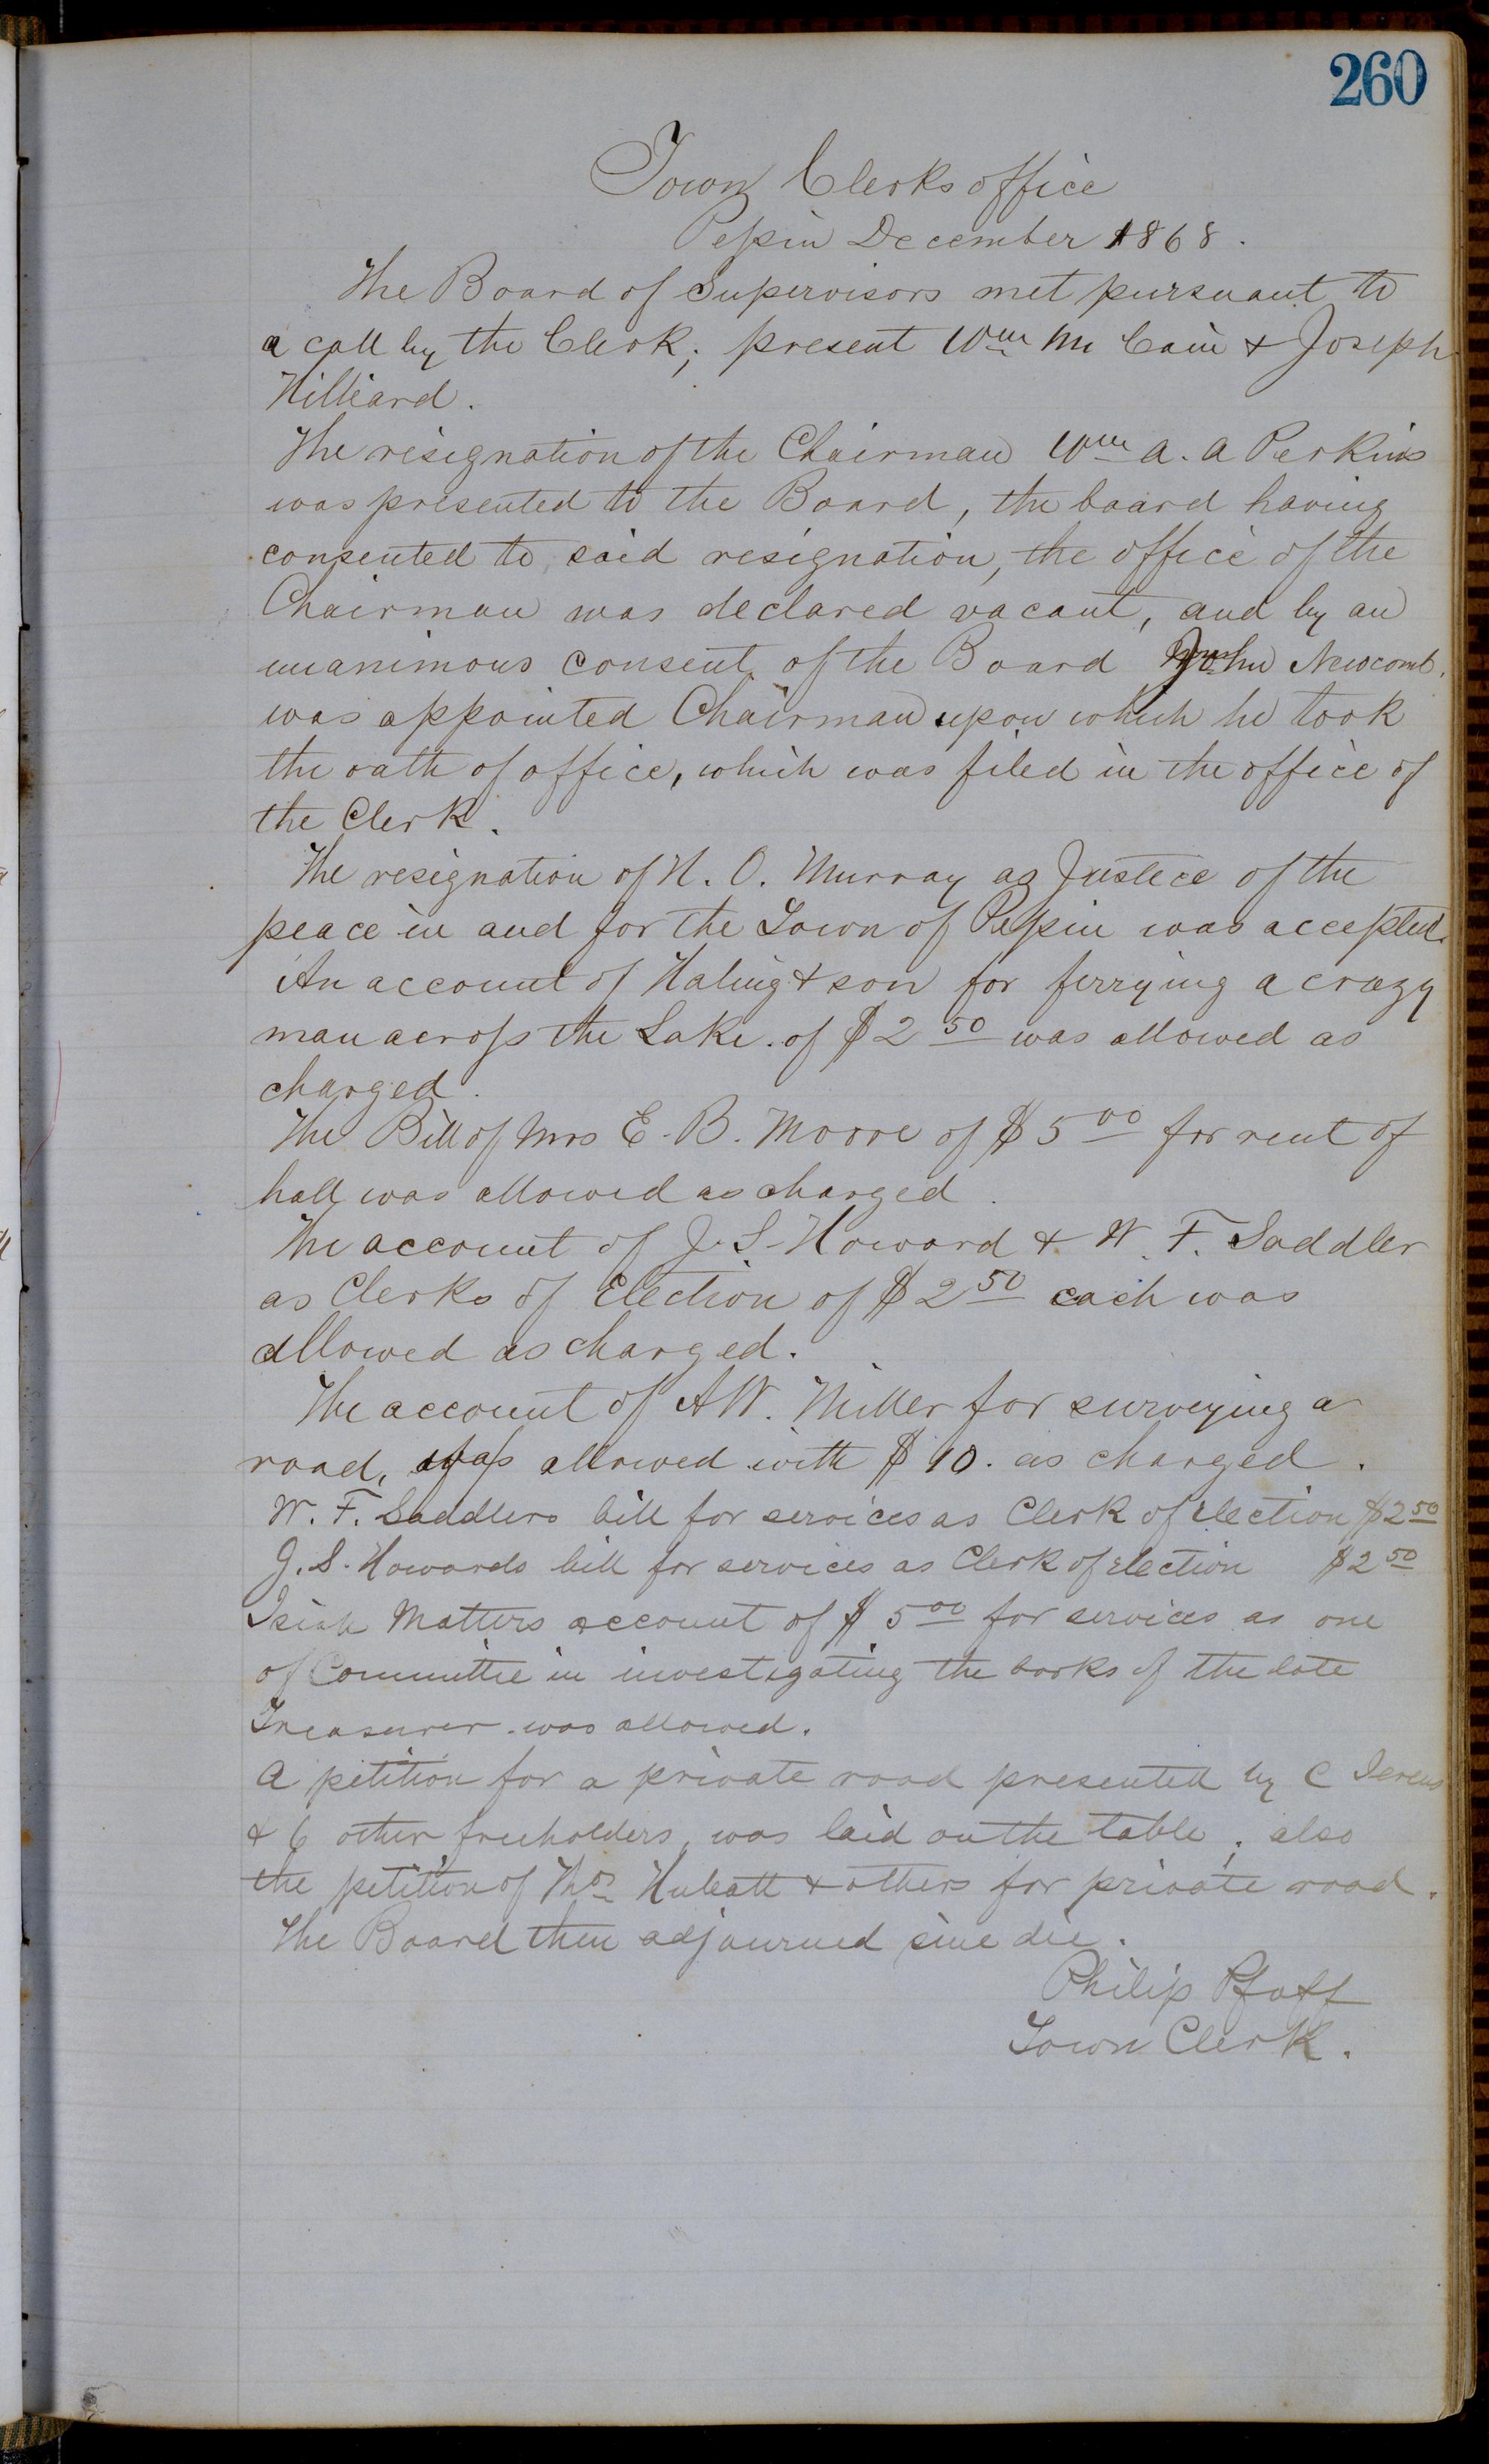 260
Town Clerks office
Pepin December 1868.
The Board of Supervisors met pursuant to
a call by the Clerk; present Wm Mc Cain & Joseph
Hilliard.
The resignation of the Chairman Wm A. A Perkins
was presented to the Board, the board having
consented to said resignation, the office of the
Chairman was declared vacant, and by an
unanimous consent of the Board John Newcomb.
was appointed Chairman upon which he took
the oath of office, which was filed in the office of
the Clerk.
The resignation of H. O. Murray as Justice of the
peace in and for the Town of Pepin was accepted.
An account of & son for ferrying a crazy
man across the Lake. of $2 50 was allowed as
charged.
The Bill of Mrs E. B. Moore of $5 00 for rent of
hall was allowed as charged.
The account of J. S. Howard & W. F. Saddler
as Clerks of Election of $2 50 each was
allowed as charged.
The account of A W. Miller for surveying a
road, was allowed with $10. as charged.
W. F. Saddlers bill for services as Clerk of Election $2 50
J. S. Howards bill for services as Clerk of Election $2 50
Isiah Matters account of $5 00 for services as one
of Committie in investigating the books of the late
Treasurer was allowed.
A petition for a private road presented by C
& 6 other freeholders, was laid on the table; also
the petition of Thos & others for private road.
The Board then adjourned sine die.
Philip Pfaff
Town Clerk.